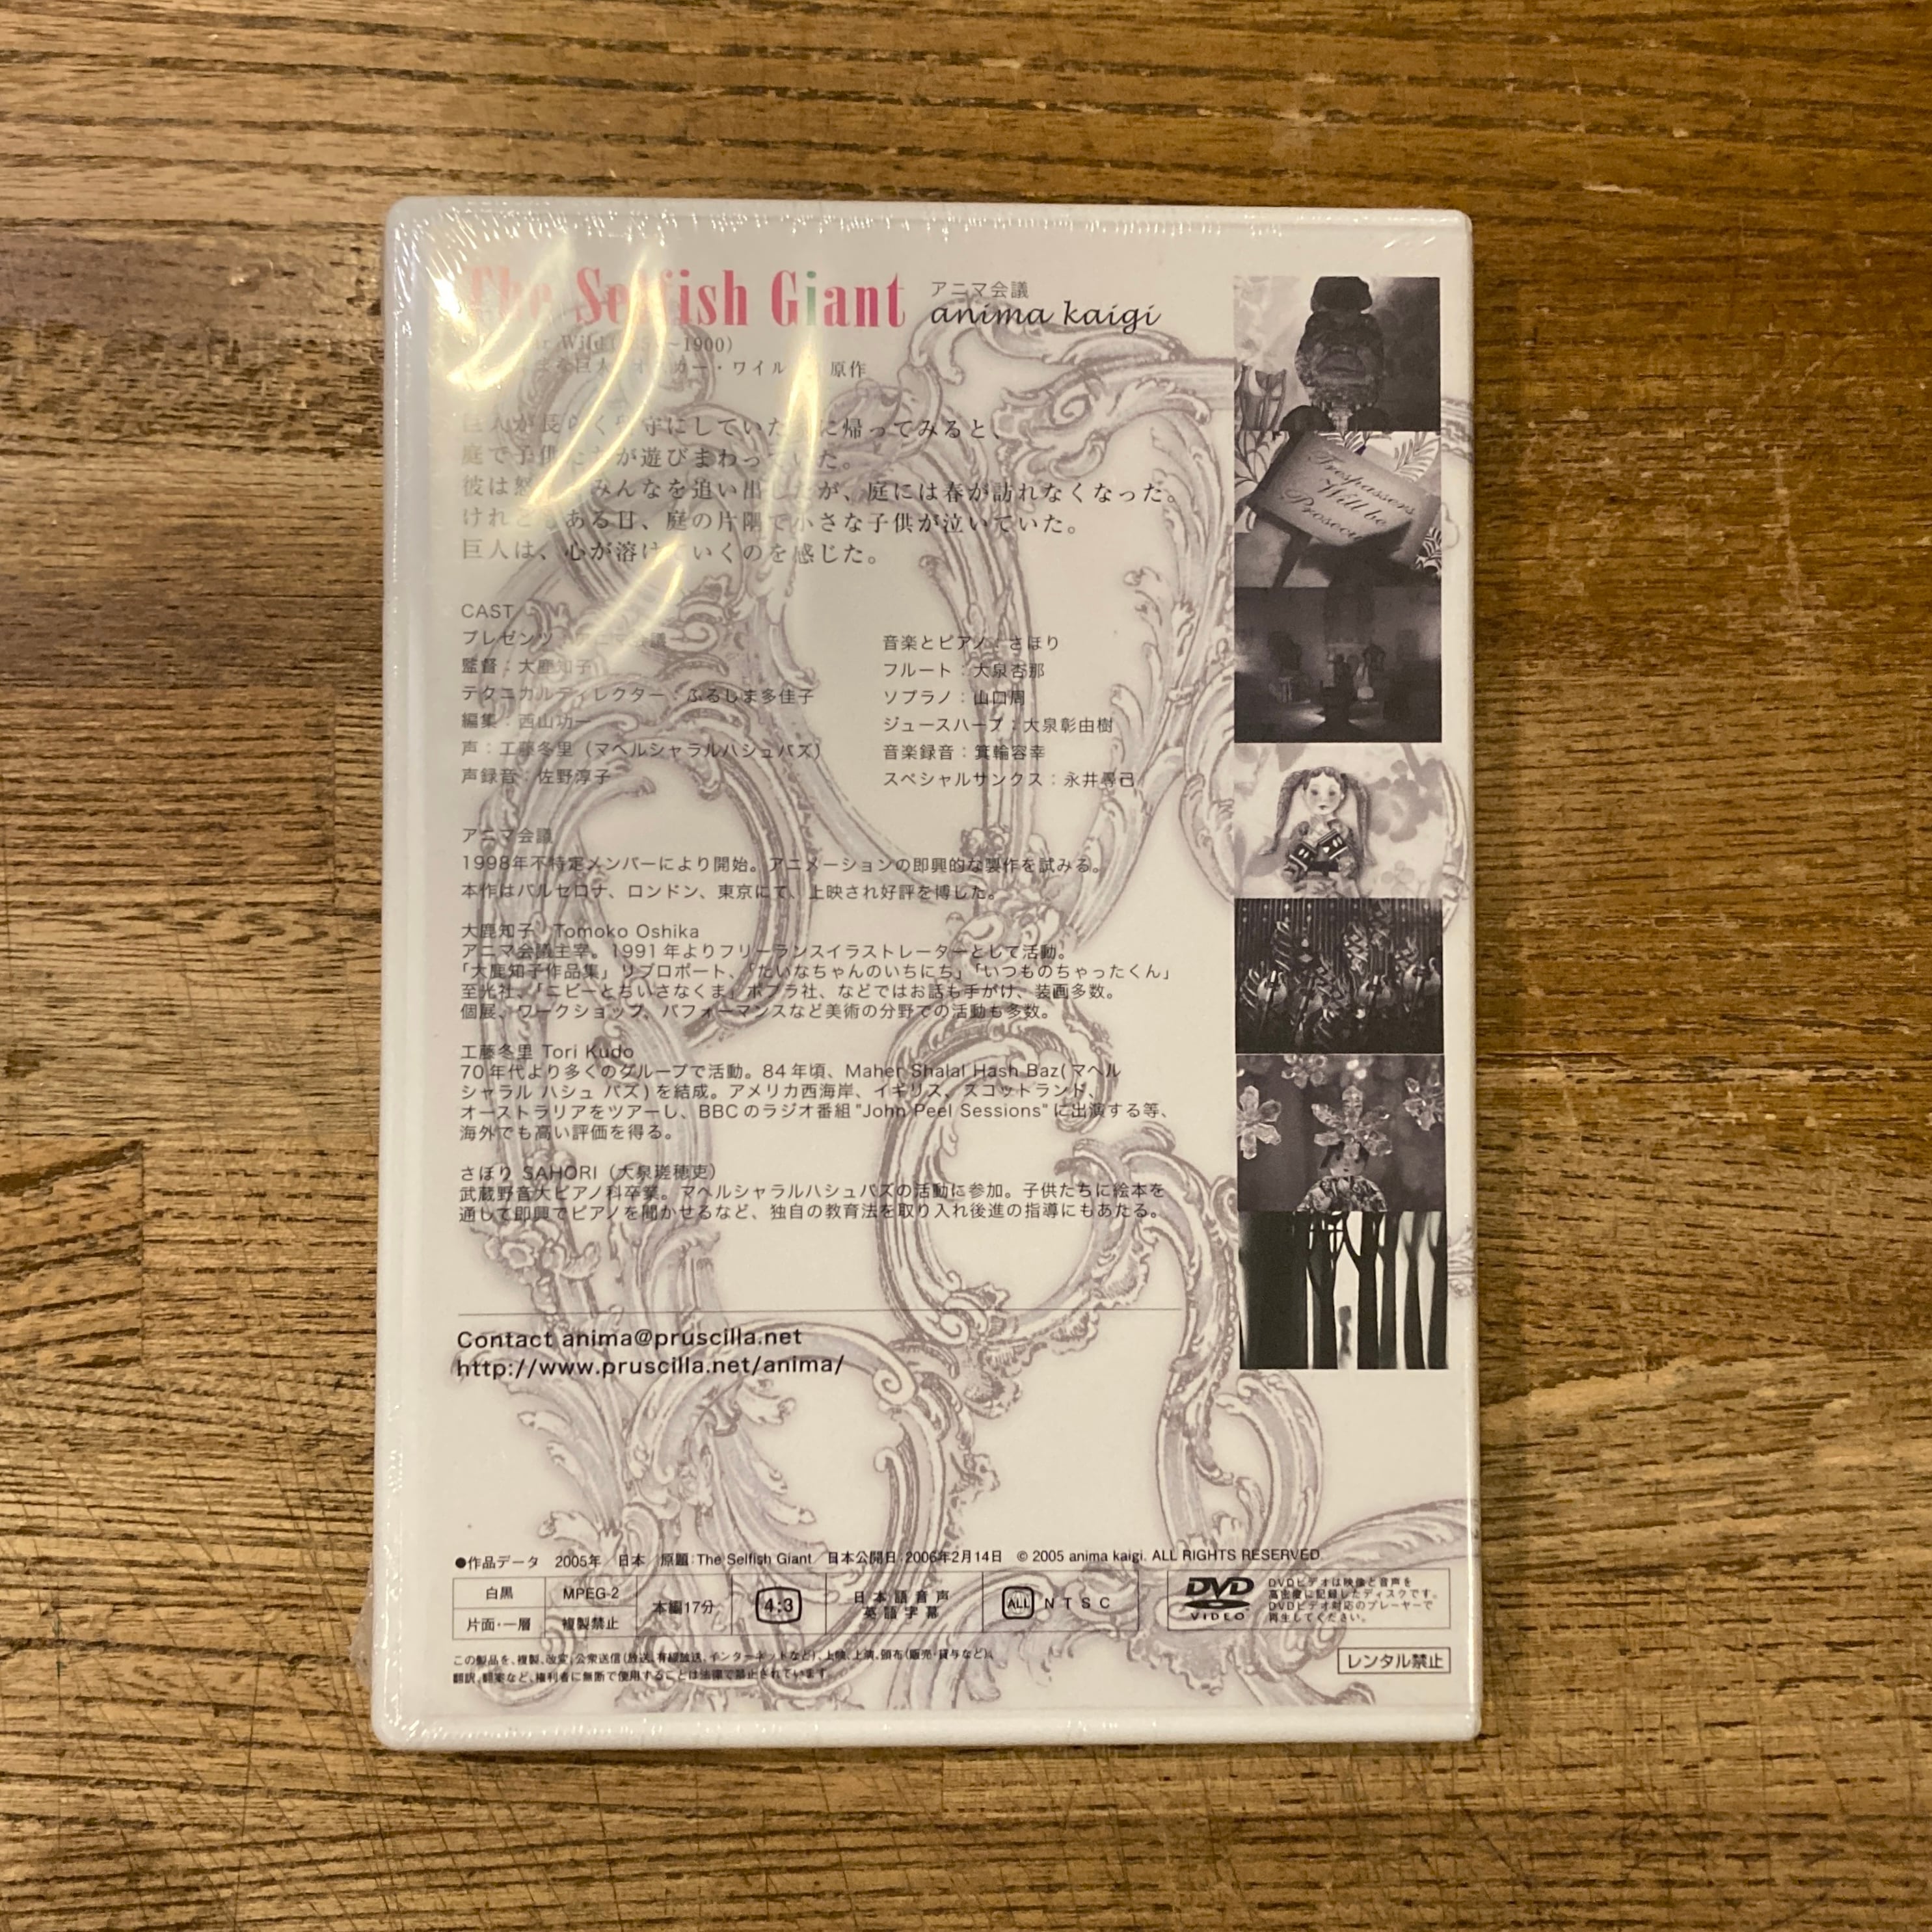 The Selfish Giant
アニマ会議
anima kaigi
～1900)
巨人 カー・ワイル 原作
巨人が長らく守にしていた に帰ってみると、
庭で子供たちが遊びまわっていた。
彼は怒 みんなを追い出したが、庭には春が訪れなくなった。
けれど ある日、庭の片隅で小さな子供が泣いていた。
巨人は、心が溶けていくのを感じた。
CAST
プレゼンツ アニマ会議
監督：大鹿知子
テクニカルディレクター：ふるしま多佳子
編集：西山功一
声：工藤冬里（マヘルシャラルハシュバズ）
声録音：佐野淳子
音楽とピアノ：さほり
フルート：大泉杏那
ソプラノ：山口周
ジュースハープ：大泉彰由樹
音楽録音：箕輪容幸
スペシャルサンクス：永井尋己
アニマ会議
1998年不特定メンバーにより開始。アニメーションの即興的な製作を試みる。
本作はバルセロナ、ロンドン、東京にて、上映され好評を博した。
大鹿知子 Tomoko Oshika
アニマ会議主宰。1991年よりフリーランスイラストレーターとして活動。
「大鹿知子作品集」リブロポート、「たいなちゃんのいちにち」「いつものちゃったくん」
至光社、「ニビーとちいさなくま」ポプラ社、などではお話も手がけ、装画多数。
個展、ワークショップ、パフォーマンスなど美術の分野での活動も多数。
工藤冬里 Tori Kudo
70年代より多くのグループで活動。84年頃、Maher Shalal Hash Baz(マヘル
シャラル ハシュ バズ)を結成。アメリカ西海岸、イギリス、スコットランド、
オーストラリアをツアーし、BBCのラジオ番組"John Peel Sessions"に出演する等、
海外でも高い評価を得る。
さほり SAHORI（大泉瑳穂吏）
武蔵野音大ピアノ科卒業。マヘルシャラルハシュバズの活動に参加。子供たちに絵本を
通して即興でピアノを聞かせるなど、独自の教育法を取り入れ後進の指導にもあたる。
Contact anima@pruscilla.net
http://www.pruscilla.net/anima/
Trespassers
Will be
Prosecu
●作品データ 2005年／日本／原題:The Selfish Giant／日本公開日:2006年2月14日 © 2005 anima kaigi. ALL RIGHTS RESERVED
白黒
MPEG-2
片面・一層
複製禁止
本編17分
4:3
日本語音声
英語字幕
ALL NTSC
DVD VIDEO
DVDビデオは映像と音声を
高密度に記録したディスクです。
DVDビデオ対応のプレーヤーで
再生してください。
この製品を、複製、改変、公衆送信(放送、有線放送、インターネットなど)、上映、上演、頒布(販売・貸与など)、
翻訳、翻案など、権利者に無断で使用することは法律で禁止されています。
レンタル禁止